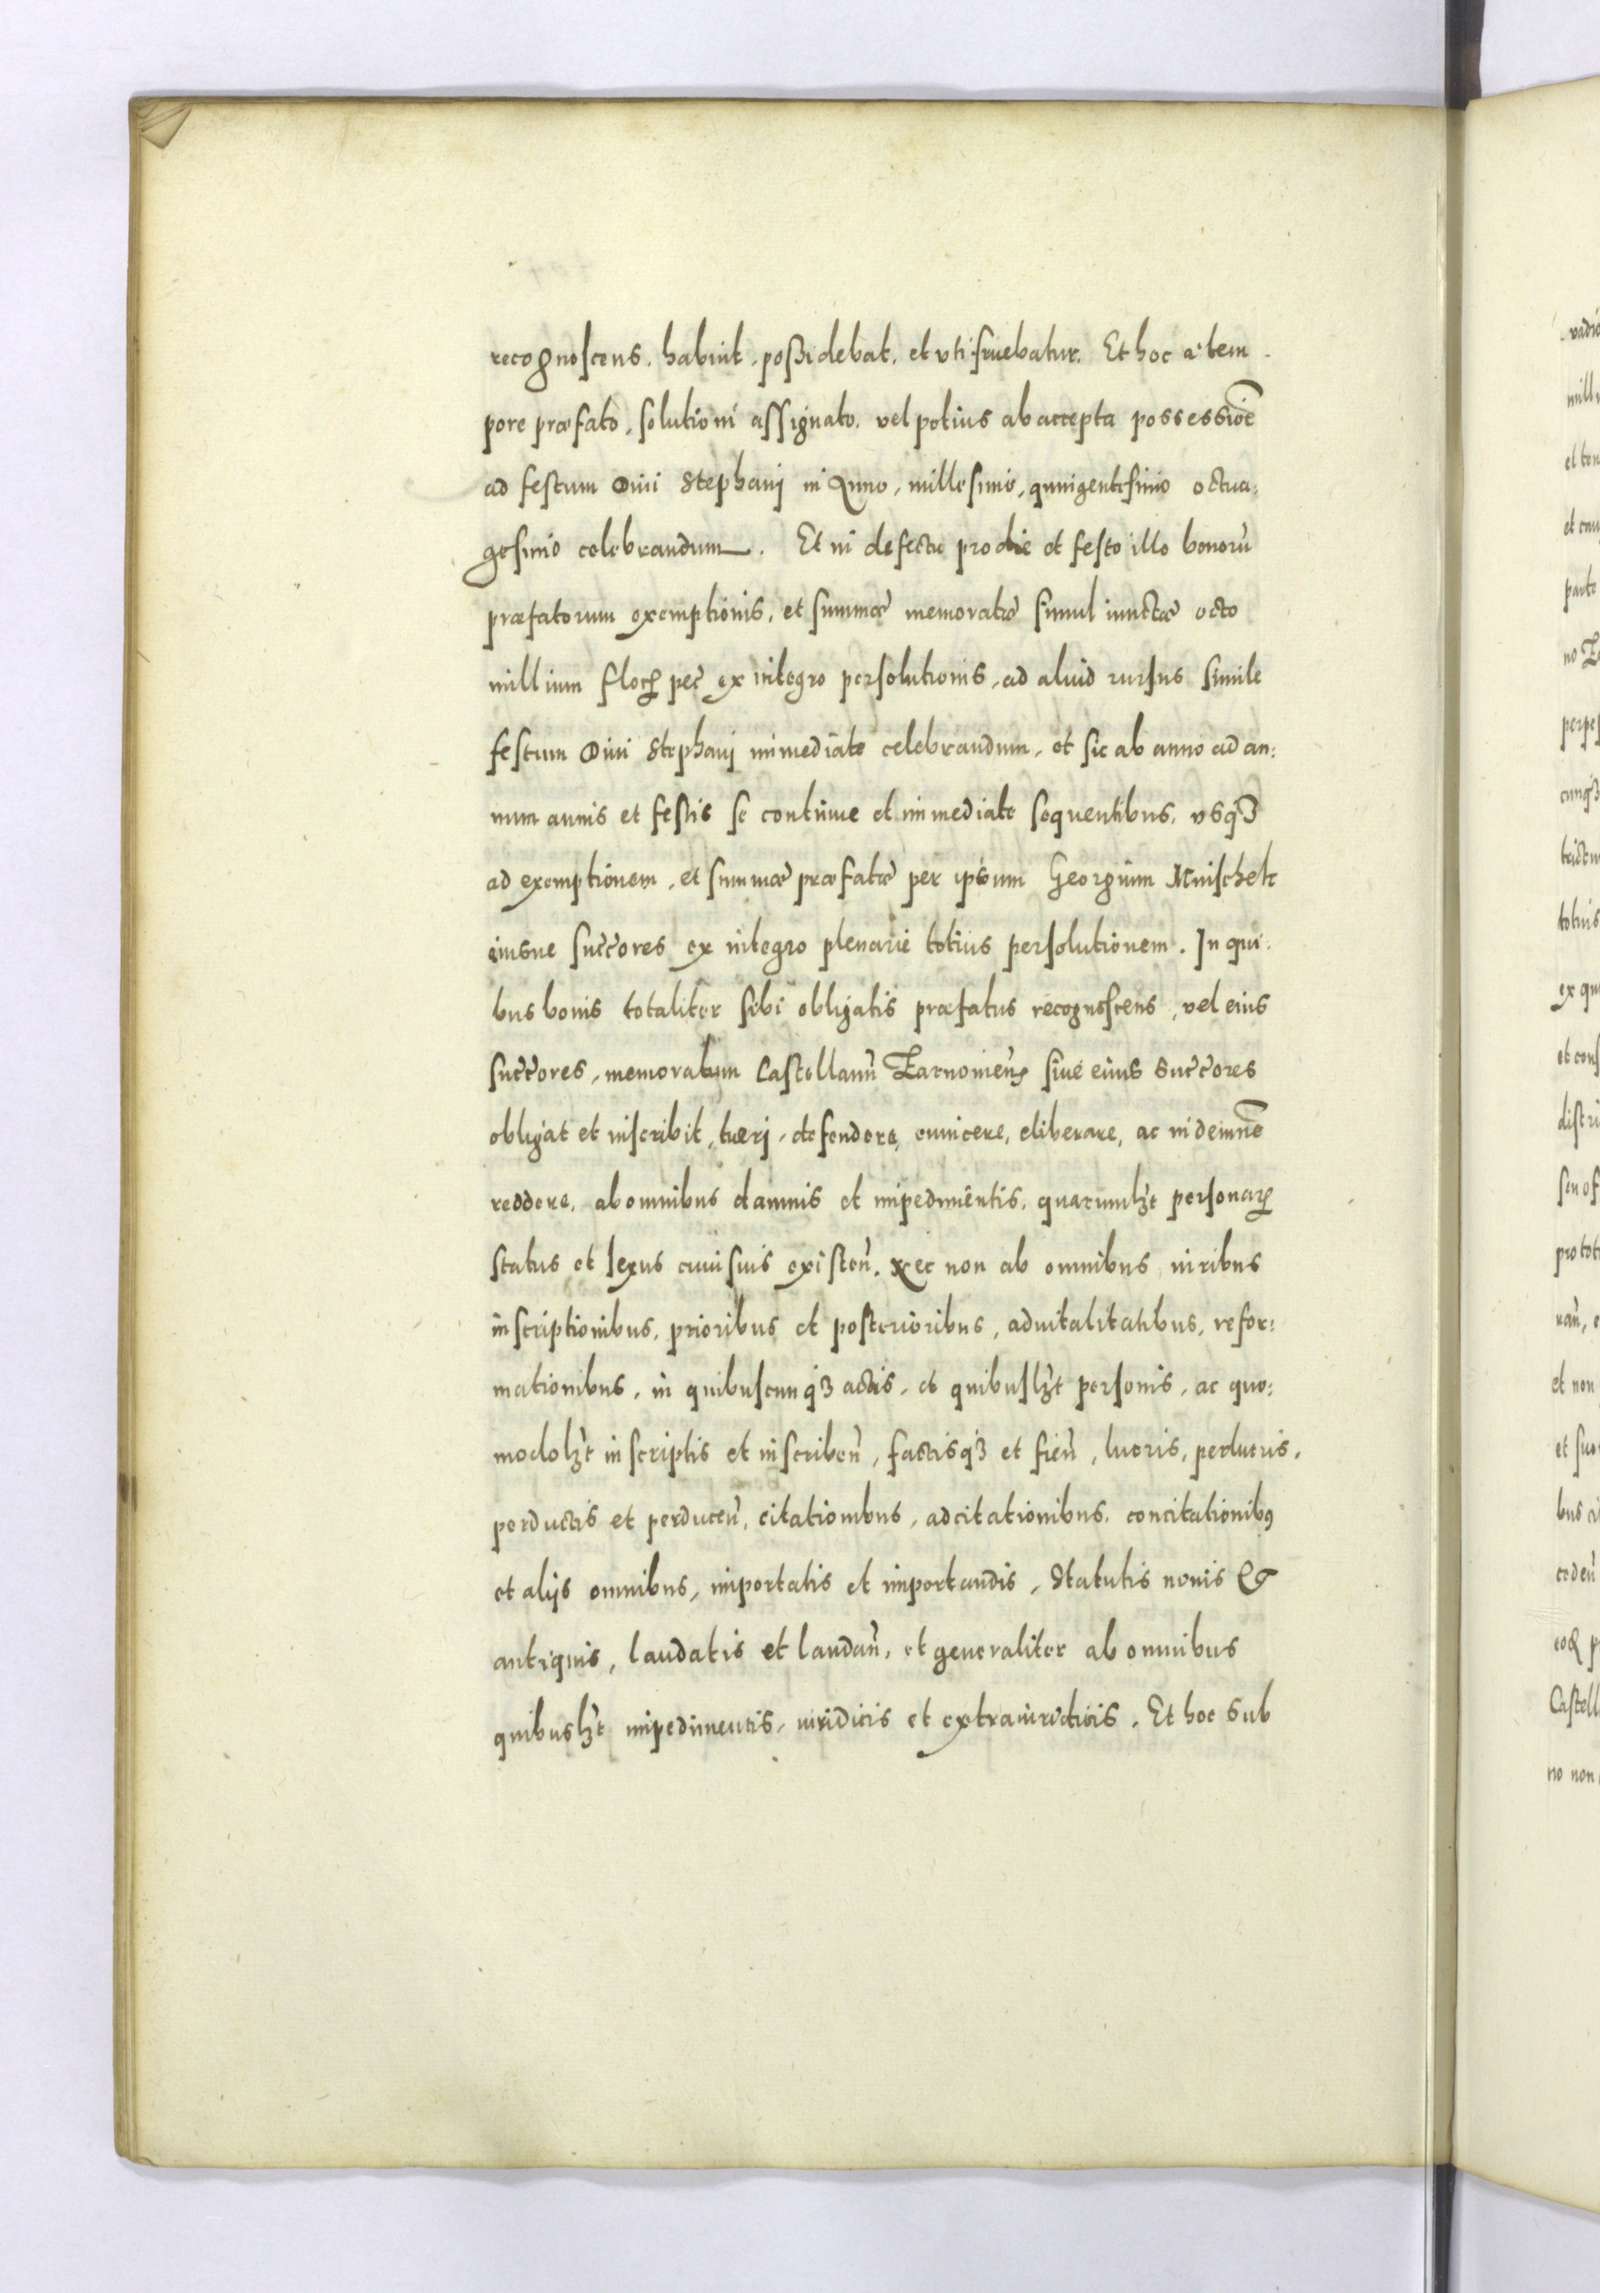 recognoscens, habuit, possidebat, et utifruebatur. Et hoc a tem-
pore præfato, solutioni assignato, vel potius ab accepta possessiõe
ad festum Diui Stephani in Anno, millesimo, quingentesimo octua:
gesimo celebrandum. Et in defectu pro die et festo illo bonorũ
præfatorum exemptionis, et summæ memoratæ simul iunctæ octo
millium floꝝ pec̃ ex integro persolutionis, ad aliud rursus simile
festum Diui Stephani immediate celebrandum, et sic ab anno ad an:
num annis et festis se continue et immediate sequentibus, usqꝫ
ad exemptionem, et summæ præfatæ per ipsum Georgium Mnischek
eiusue succ̃ores ex integro plenarie totius persolutionem. In qui:
bus bonis totaliter sibi obligatis præfatus recognoscens, vel eius
succ̃ores, memoratum Castellanũ Zarnonieñ siue eius succ̃ores
obligat et inscribit, tueri, defendere, euincere, eliberare, ac indemnẽ
reddere, ab omnibus damnis et impedimẽntis, quarumlꝫt personaꝝ
status et sexus cuiusuis existeñ. Nec non ab omnibus iuribus
inscriptionibus, prioribus et posterioribus, aduitalitatibus, refor:
mationibus, in quibuscunqꝫ actis, et quibuslꝫt personis, ac quo:
modolꝫt inscriptis et inscribeñ, factisqꝫ et fieñ, lucris, perlucris,
perductis et perduceñ, citationibus, adcitationibus, concitationibꝰ
et alijs omnibus, importatis et importandis, Statutis nouis &
antiquis, laudatis et laudañ, et generaliter ab omnibus
quibuslꝫt impedimentis, iuridicis et extraiuridicis. Et hoc sub